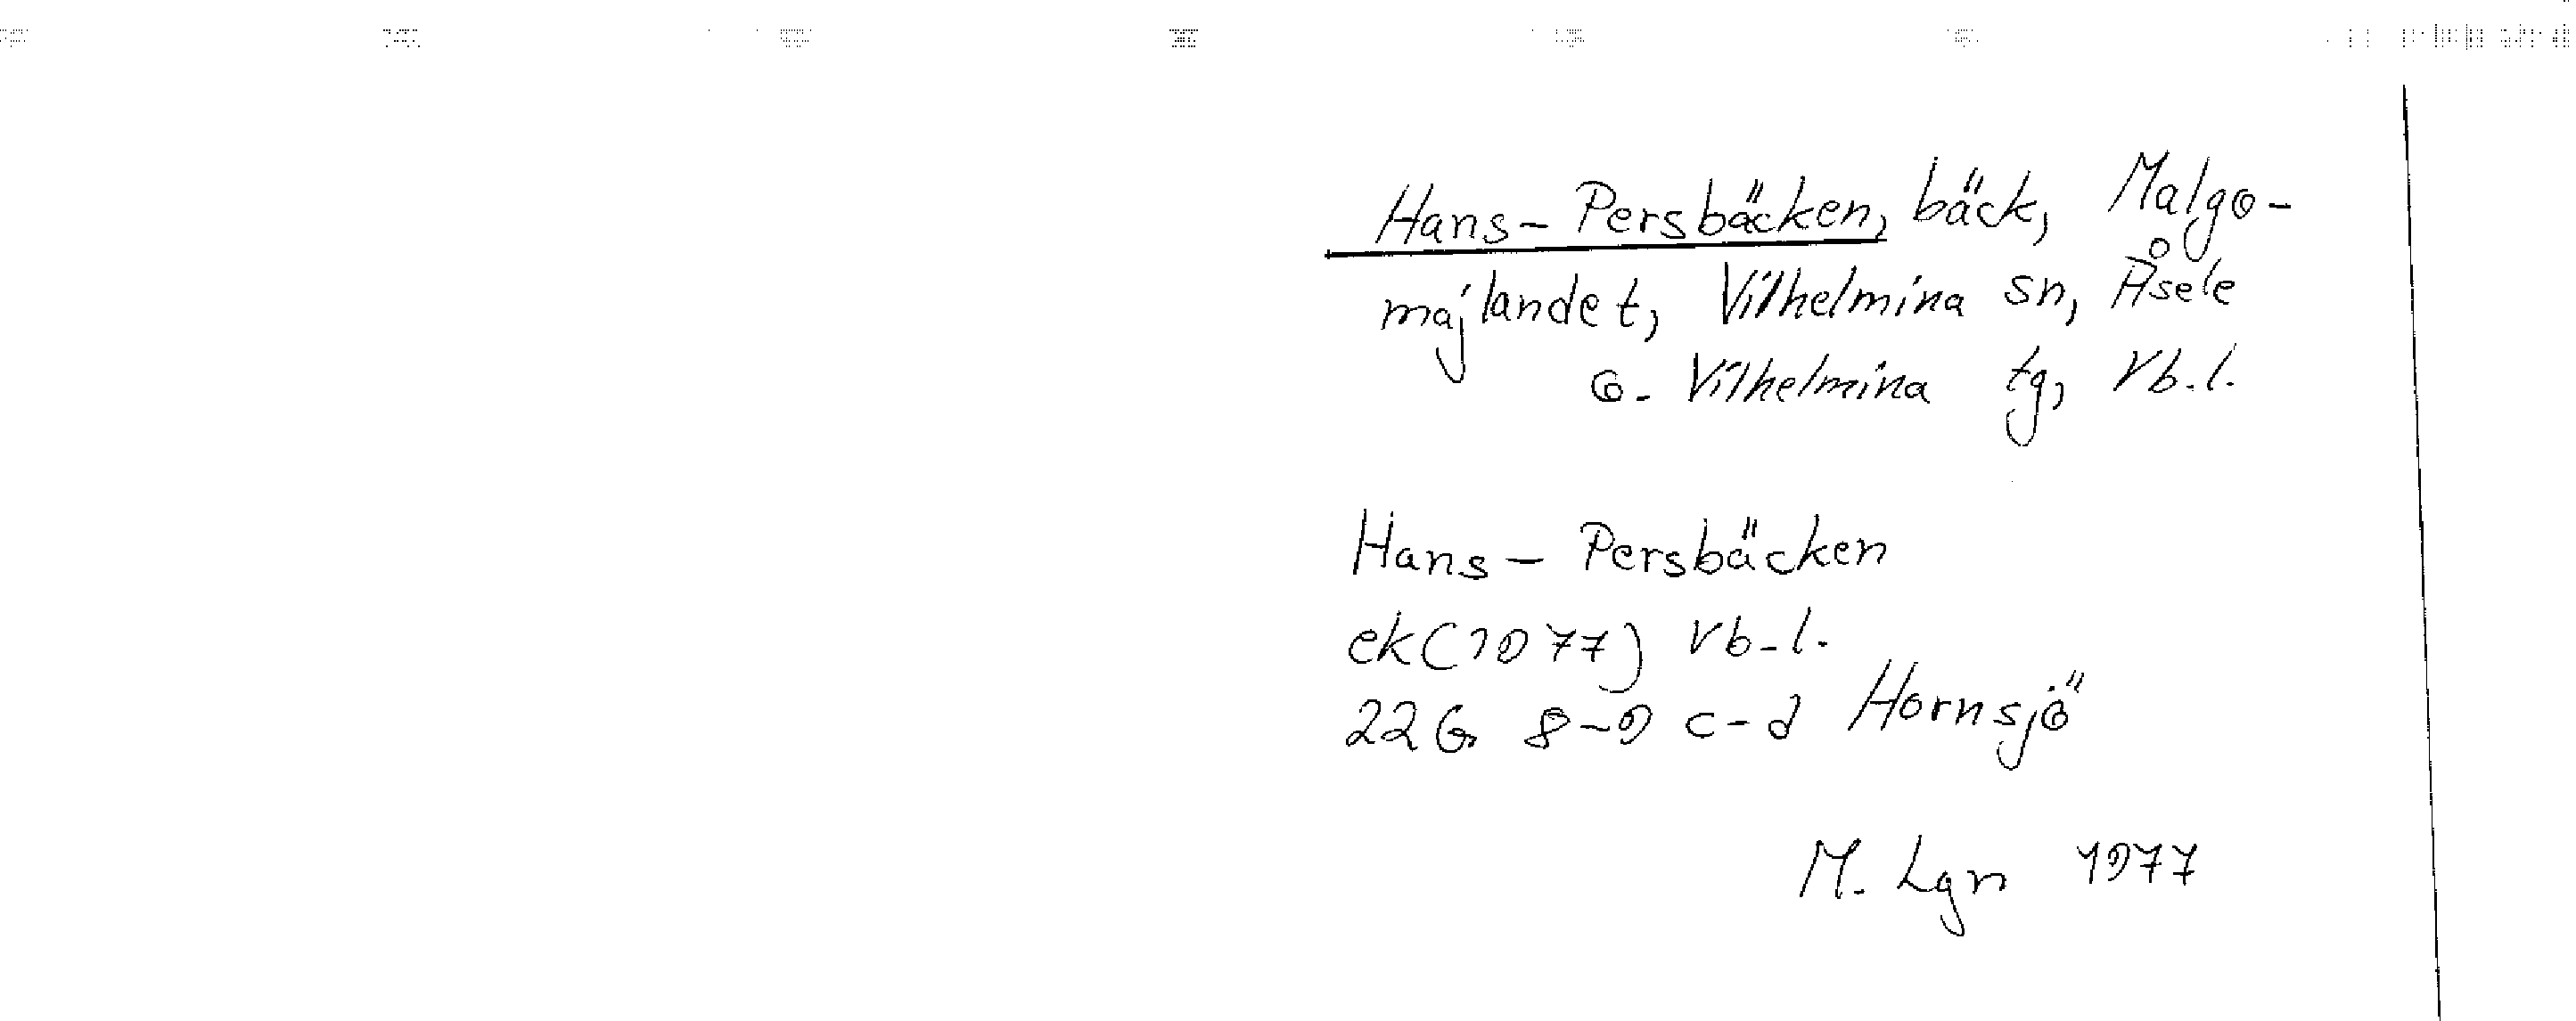 Hans-Persbäcken, bäck, Malgo-
majlandet, Vilhelmina sn, Åsele
o. Vilhelmina tg, Vb.l.
Hans-Persbäcken
ek(1977) Vb.l.
22G 8-9 c-d Hornsjö
M. Lgn 1977